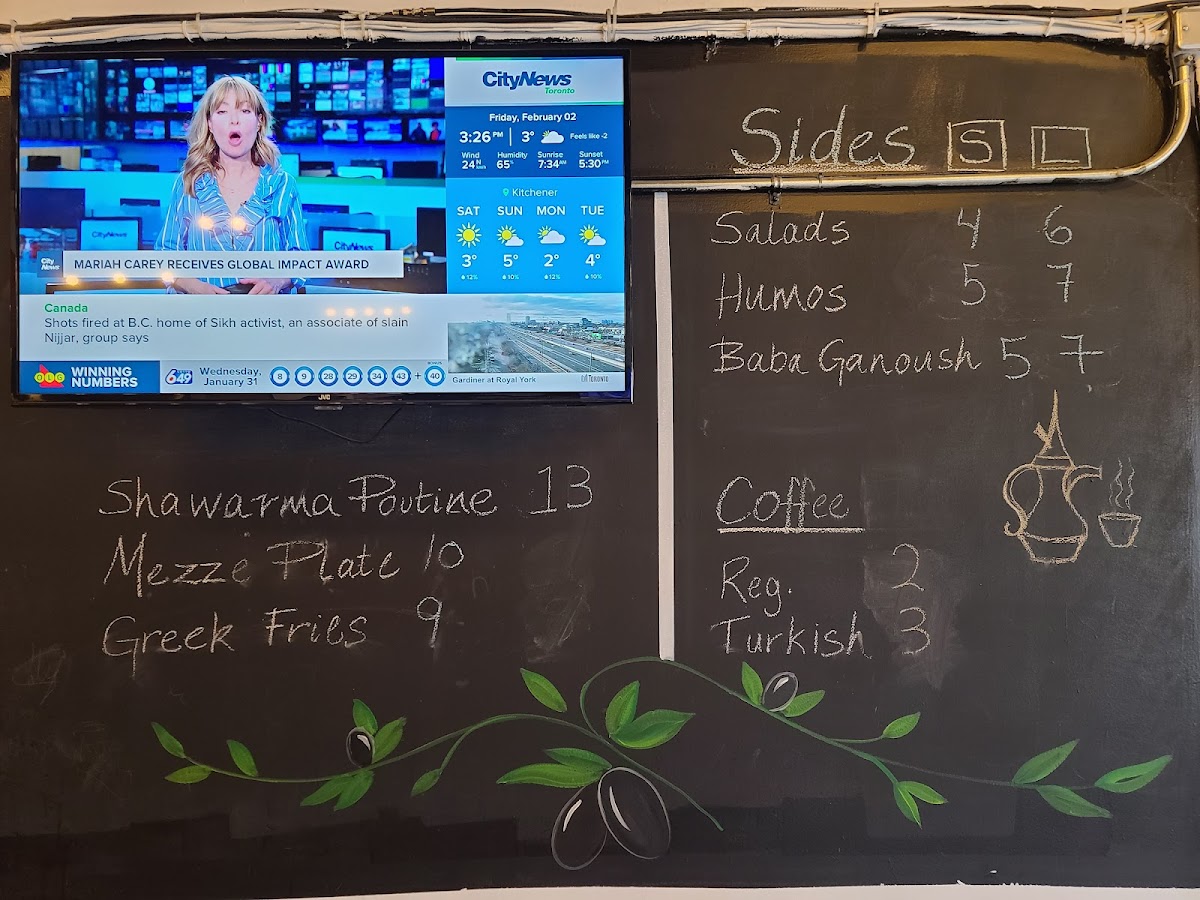 CityNews
Toronto
Friday, February 02
3:26 PM 3° Feels like -2
Wind Humidity Sunrise Sunset
24 N 65% 7:34 AM 5:30 PM
Kitchener
SAT SUN MON TUE
3° 5° 2° 4°
12% 10% 12% 10%
CityNews
CityNews
City News
MARIAH CAREY RECEIVES GLOBAL IMPACT AWARD
Canada
Shots fired at B.C. home of Sikh activist, an associate of slain
Nijjar, group says
OLG WINNING NUMBERS 649 Wednesday, January 31 8 9 28 29 34 43 + BONUS 40
Gardiner at Royal York TORONTO
JVC
Sides S L
Salads 4 6
Humos 5 7
Baba Ganoush 5 7
Shawarma Poutine 13
Mezze Plate 10
Greek Fries 9
Coffee
Reg. 2
Turkish 3